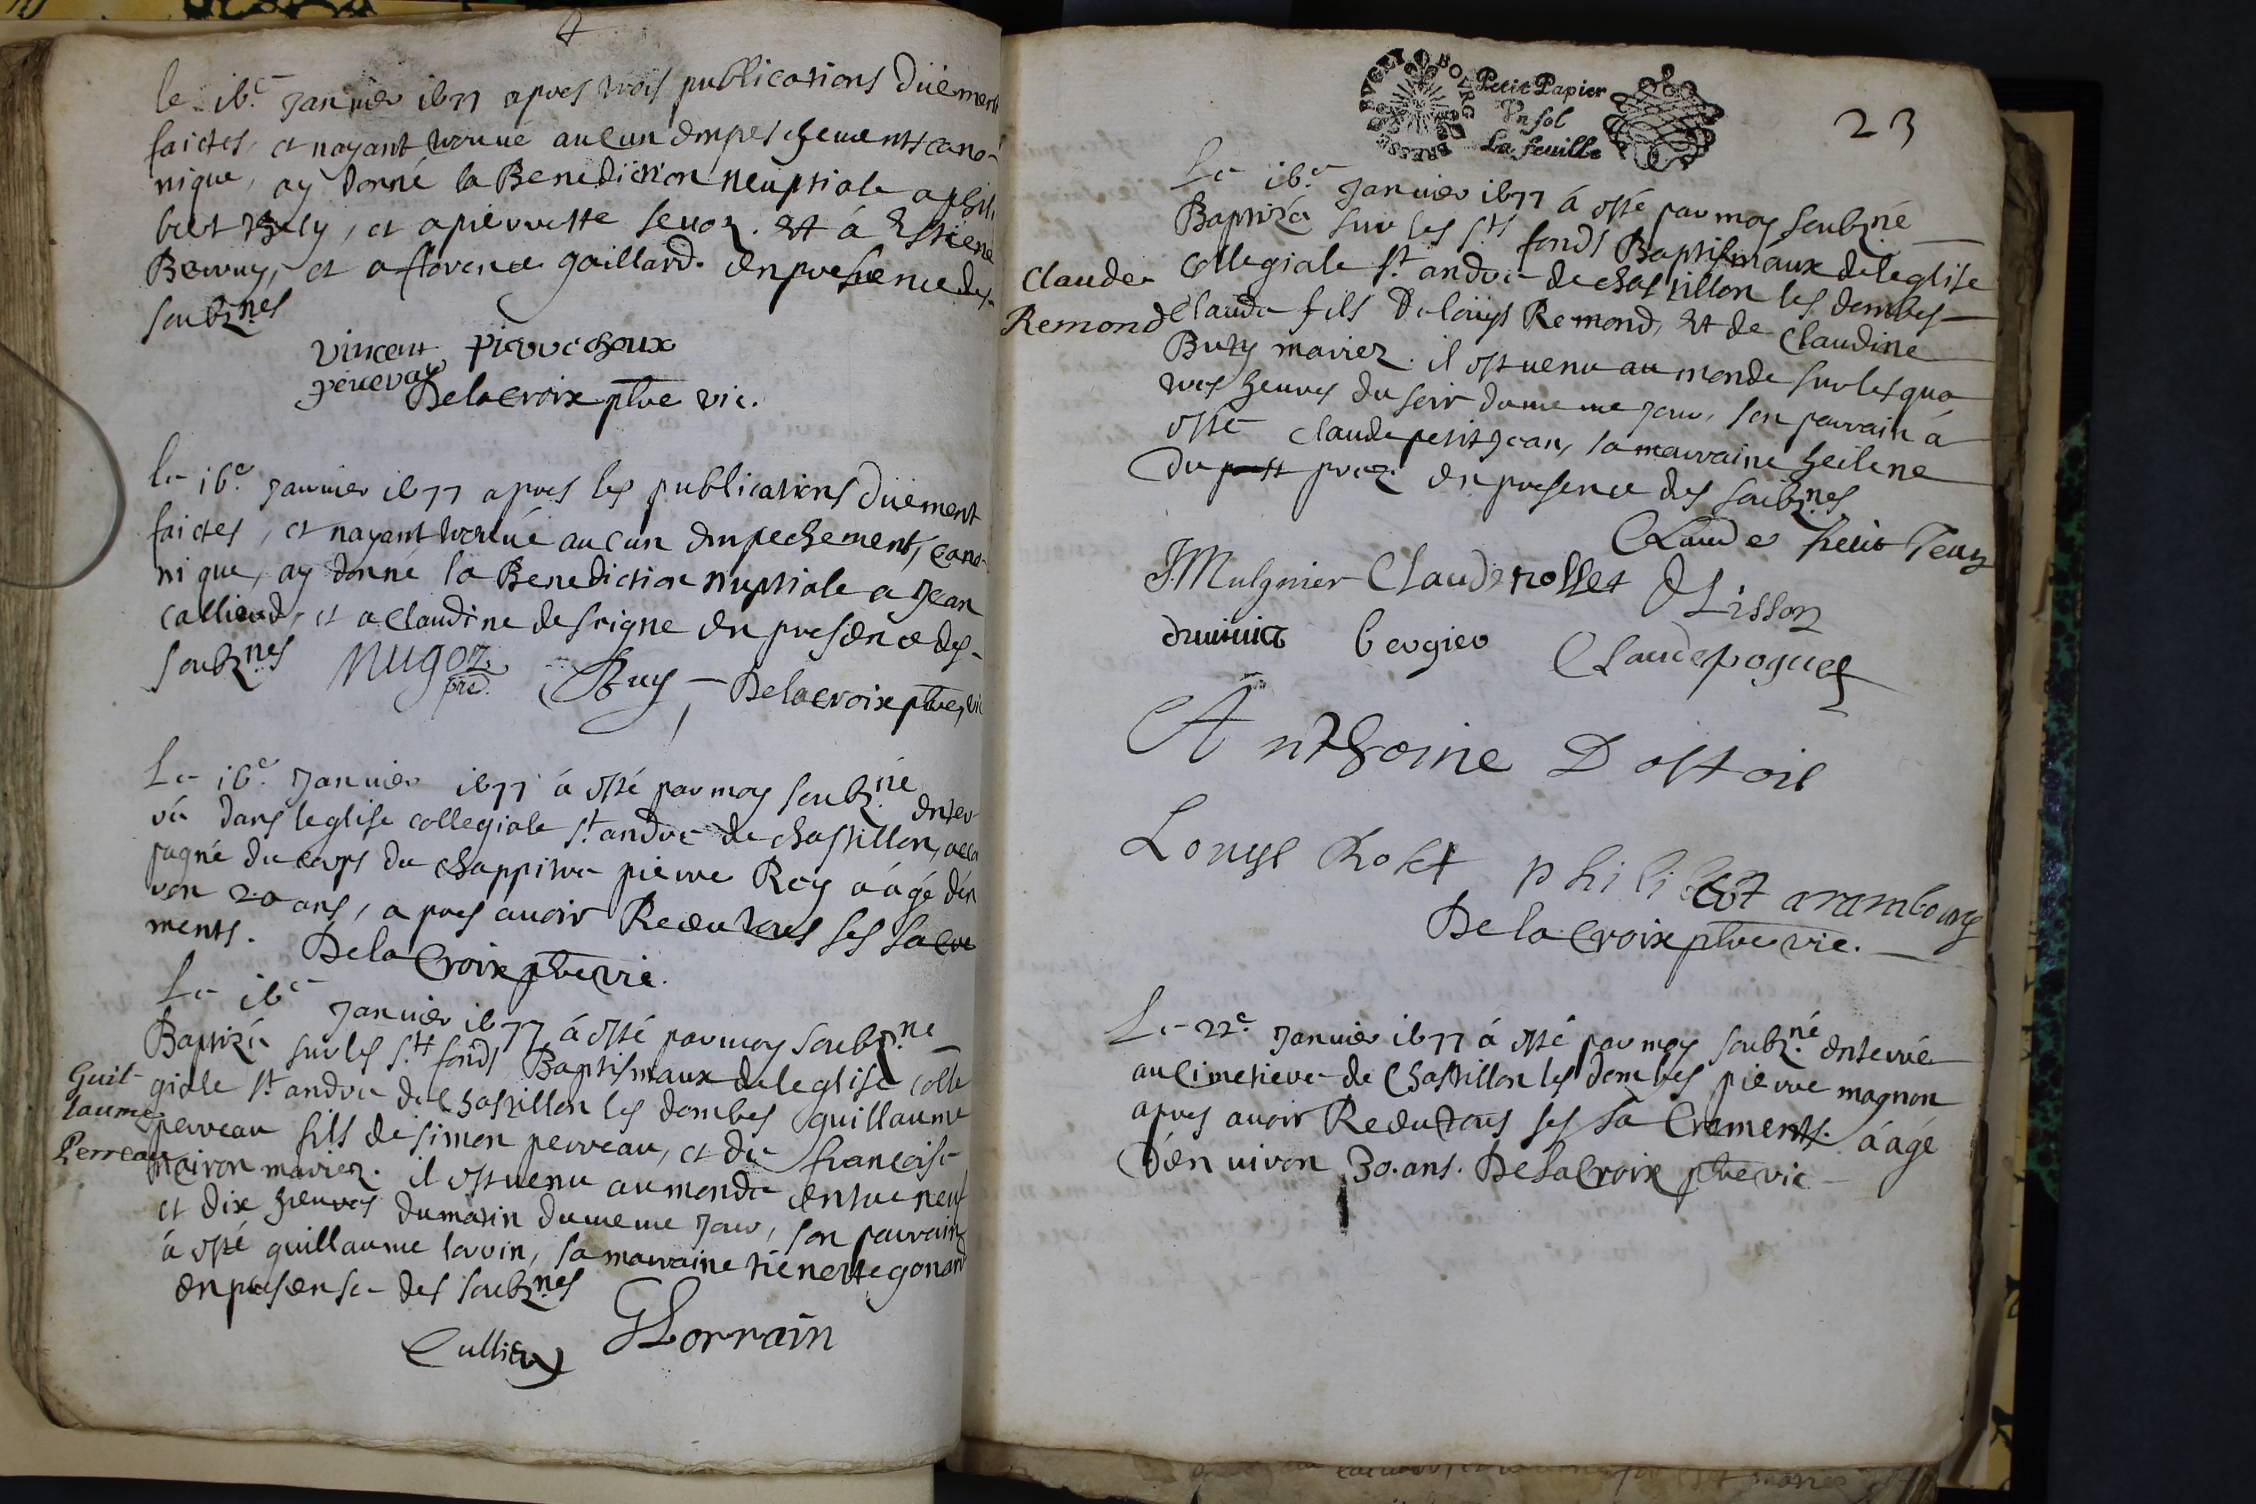 le 16e Janvier 1677 apres trois publications düement
faictes, et nayant trouué aucun empeschement cano-
nique, ay donné la Benediction neuptiale a phili
bert, et a pierrette. Et á Estiene
et a florence gaillard. en presence des
soubznes
Vincent pierrechoux
Delacroix pbre vic.
le 16e Janvier 1677 apres les publications düement
faictes, et nayant trouué aucun empechement, cano-
nique, ay donné la Benediction nuptiale a Jean
et a Claudine en presence des
soubznes Nugoz pre. Buy Delacroix pbre, vic
Le 16e Janvier 1677 á esté par moy soubzné enter-
ré dans leglise collegiale st andré de chastillon, acco
pagné du corps du chappitre pierre Rey áágé den
ron 20 ans, apres auoir Receu tous ses sacre
ments. Dela Croix pbre vic.
Le 16e Janvier 1677 á esté par moy soubzné
Baptizé sur les sts fonds Baptismaux de leglise colle
Guil-
laume
Perreau
giale st andré de Chastillon les dombes guillaume
perreau fils de simon perreau, et de francoise
mariez. il est uenu au monde entre neuf
et dix heures du matin du meme Jour, son parrain
á esté guillaume lorrin, sa marraine tienette gonard
en presense des soubznes
Cullieu GLorrain
BRESSE BVGEY BOVRG
Petit Papier
Vn sol
La feuille
23
Le 16e Janvier 1677 á esté par moy soubzné
Baptizé sur les sts fonds Baptismaux de leglise
Claude
Remond
collegiale st andré de chastillon les dombes
Claude fils de loüys Remond, et de Claudine
mariez. il est uenu au monde sur les qua
tres heures du soir du meme Jour, son parrain á
esté Claude petit Jean, sa marraine heilene
du prez. en presence des soubznes
Claude petit Jean
J Mulgnier Claude rosset Lisson
bergier Claude poguet
Anthoine Dostoil
Louys philibert arambourg
De la Croix pbre vic.
Le 22e Janvier 1677 á esté par moy soubzné enterré
au Cimetiere de Chastillon les dombes pierre magnon
apres auoir Receu tous ses sa Crements. áágé
den uiron 30. ans. De la Croix pbre vic